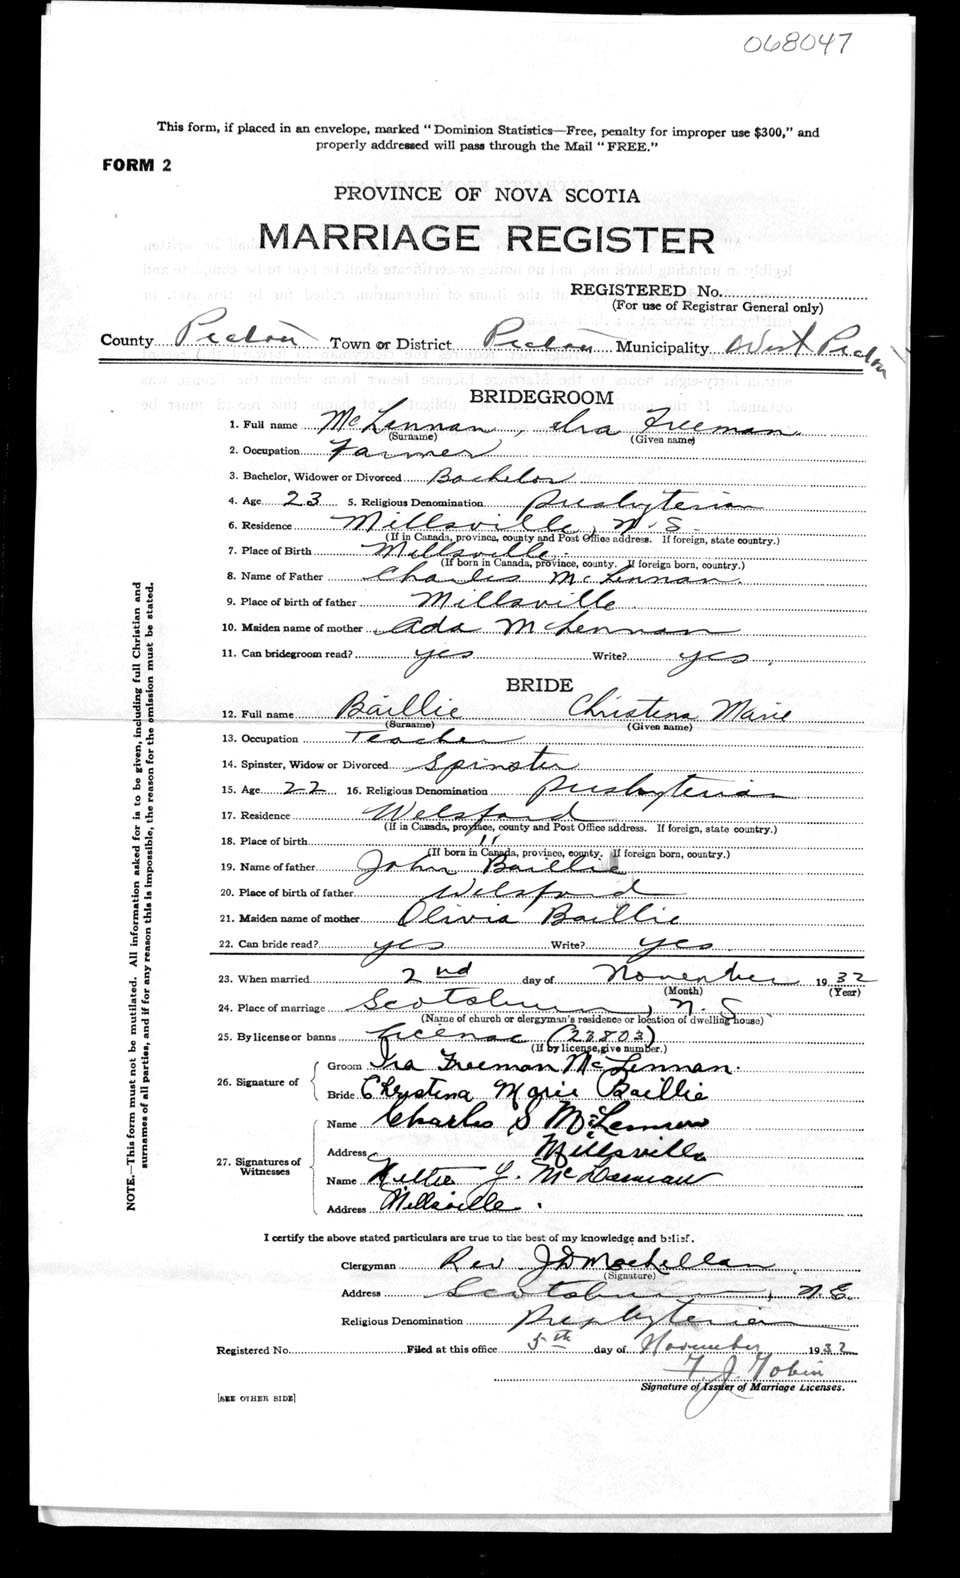 068047
This form, if placed in an envelope, marked "Dominion Statistics—Free, penalty for improper use $300," and
properly addressed will pass through the Mail "FREE."
FORM 2
PROVINCE OF NOVA SCOTIA
MARRIAGE REGISTER
REGISTERED No.
(For use of Registrar General only)
County Pictou Town or District Pictou Municipality West Pictou
BRIDEGROOM
1. Full name McLennan, Ira Freeman
(Surname) (Given name)
2. Occupation Farmer
3. Bachelor, Widower or Divorced Bachelor
4. Age 23 5. Religious Denomination Presbyterian
6. Residence Millsville, N.S.
(If in Canada, province, county and Post Office address. If foreign, state country.)
7. Place of Birth Millsville
(If born in Canada, province, county. If foreign born, country.)
8. Name of Father Charles McLennan
9. Place of birth of father Millsville
10. Maiden name of mother Ada McLennan
11. Can bridegroom read? yes Write? yes
BRIDE
12. Full name Baillie Christena Marie
(Surname) (Given name)
13. Occupation Teacher
14. Spinster, Widow or Divorced Spinster
15. Age 22 16. Religious Denomination Presbyterian
17. Residence Welsford
(If in Canada, province, county and Post Office address. If foreign, state country.)
18. Place of birth "
(If born in Canada, province, county. If foreign born, country.)
19. Name of father John Baillie
20. Place of birth of father Welsford
21. Maiden name of mother Olivia Baillie
22. Can bride read? yes Write? yes
23. When married 2nd day of November 1932
(Month) (Year)
24. Place of marriage Scotsburn, N.S
(Name of church or clergyman's residence or location of dwelling house)
25. By license or banns License (23803)
(If by license, give number.)
26. Signature of Groom Ira Freeman McLennan.
Bride Christena Marie Baillie
27. Signatures of Witnesses Name Charles S McLennan
Address Millsville
Name Y. McLennan
Address Millsville
I certify the above stated particulars are true to the best of my knowledge and belief.
Clergyman Rev. J D MacLellan
(Signature)
Address Scotsburn, N.S.
Religious Denomination Presbyterian
Registered No. Filed at this office 5th day of November 1932
F. J. Tobin
Signature of Issuer of Marriage Licenses.
[SEE OTHER SIDE]
NOTE.—This form must not be mutilated. All information asked for is to be given, including full Christian and
surnames of all parties, and if for any reason this is impossible, the reason for the omission must be stated.